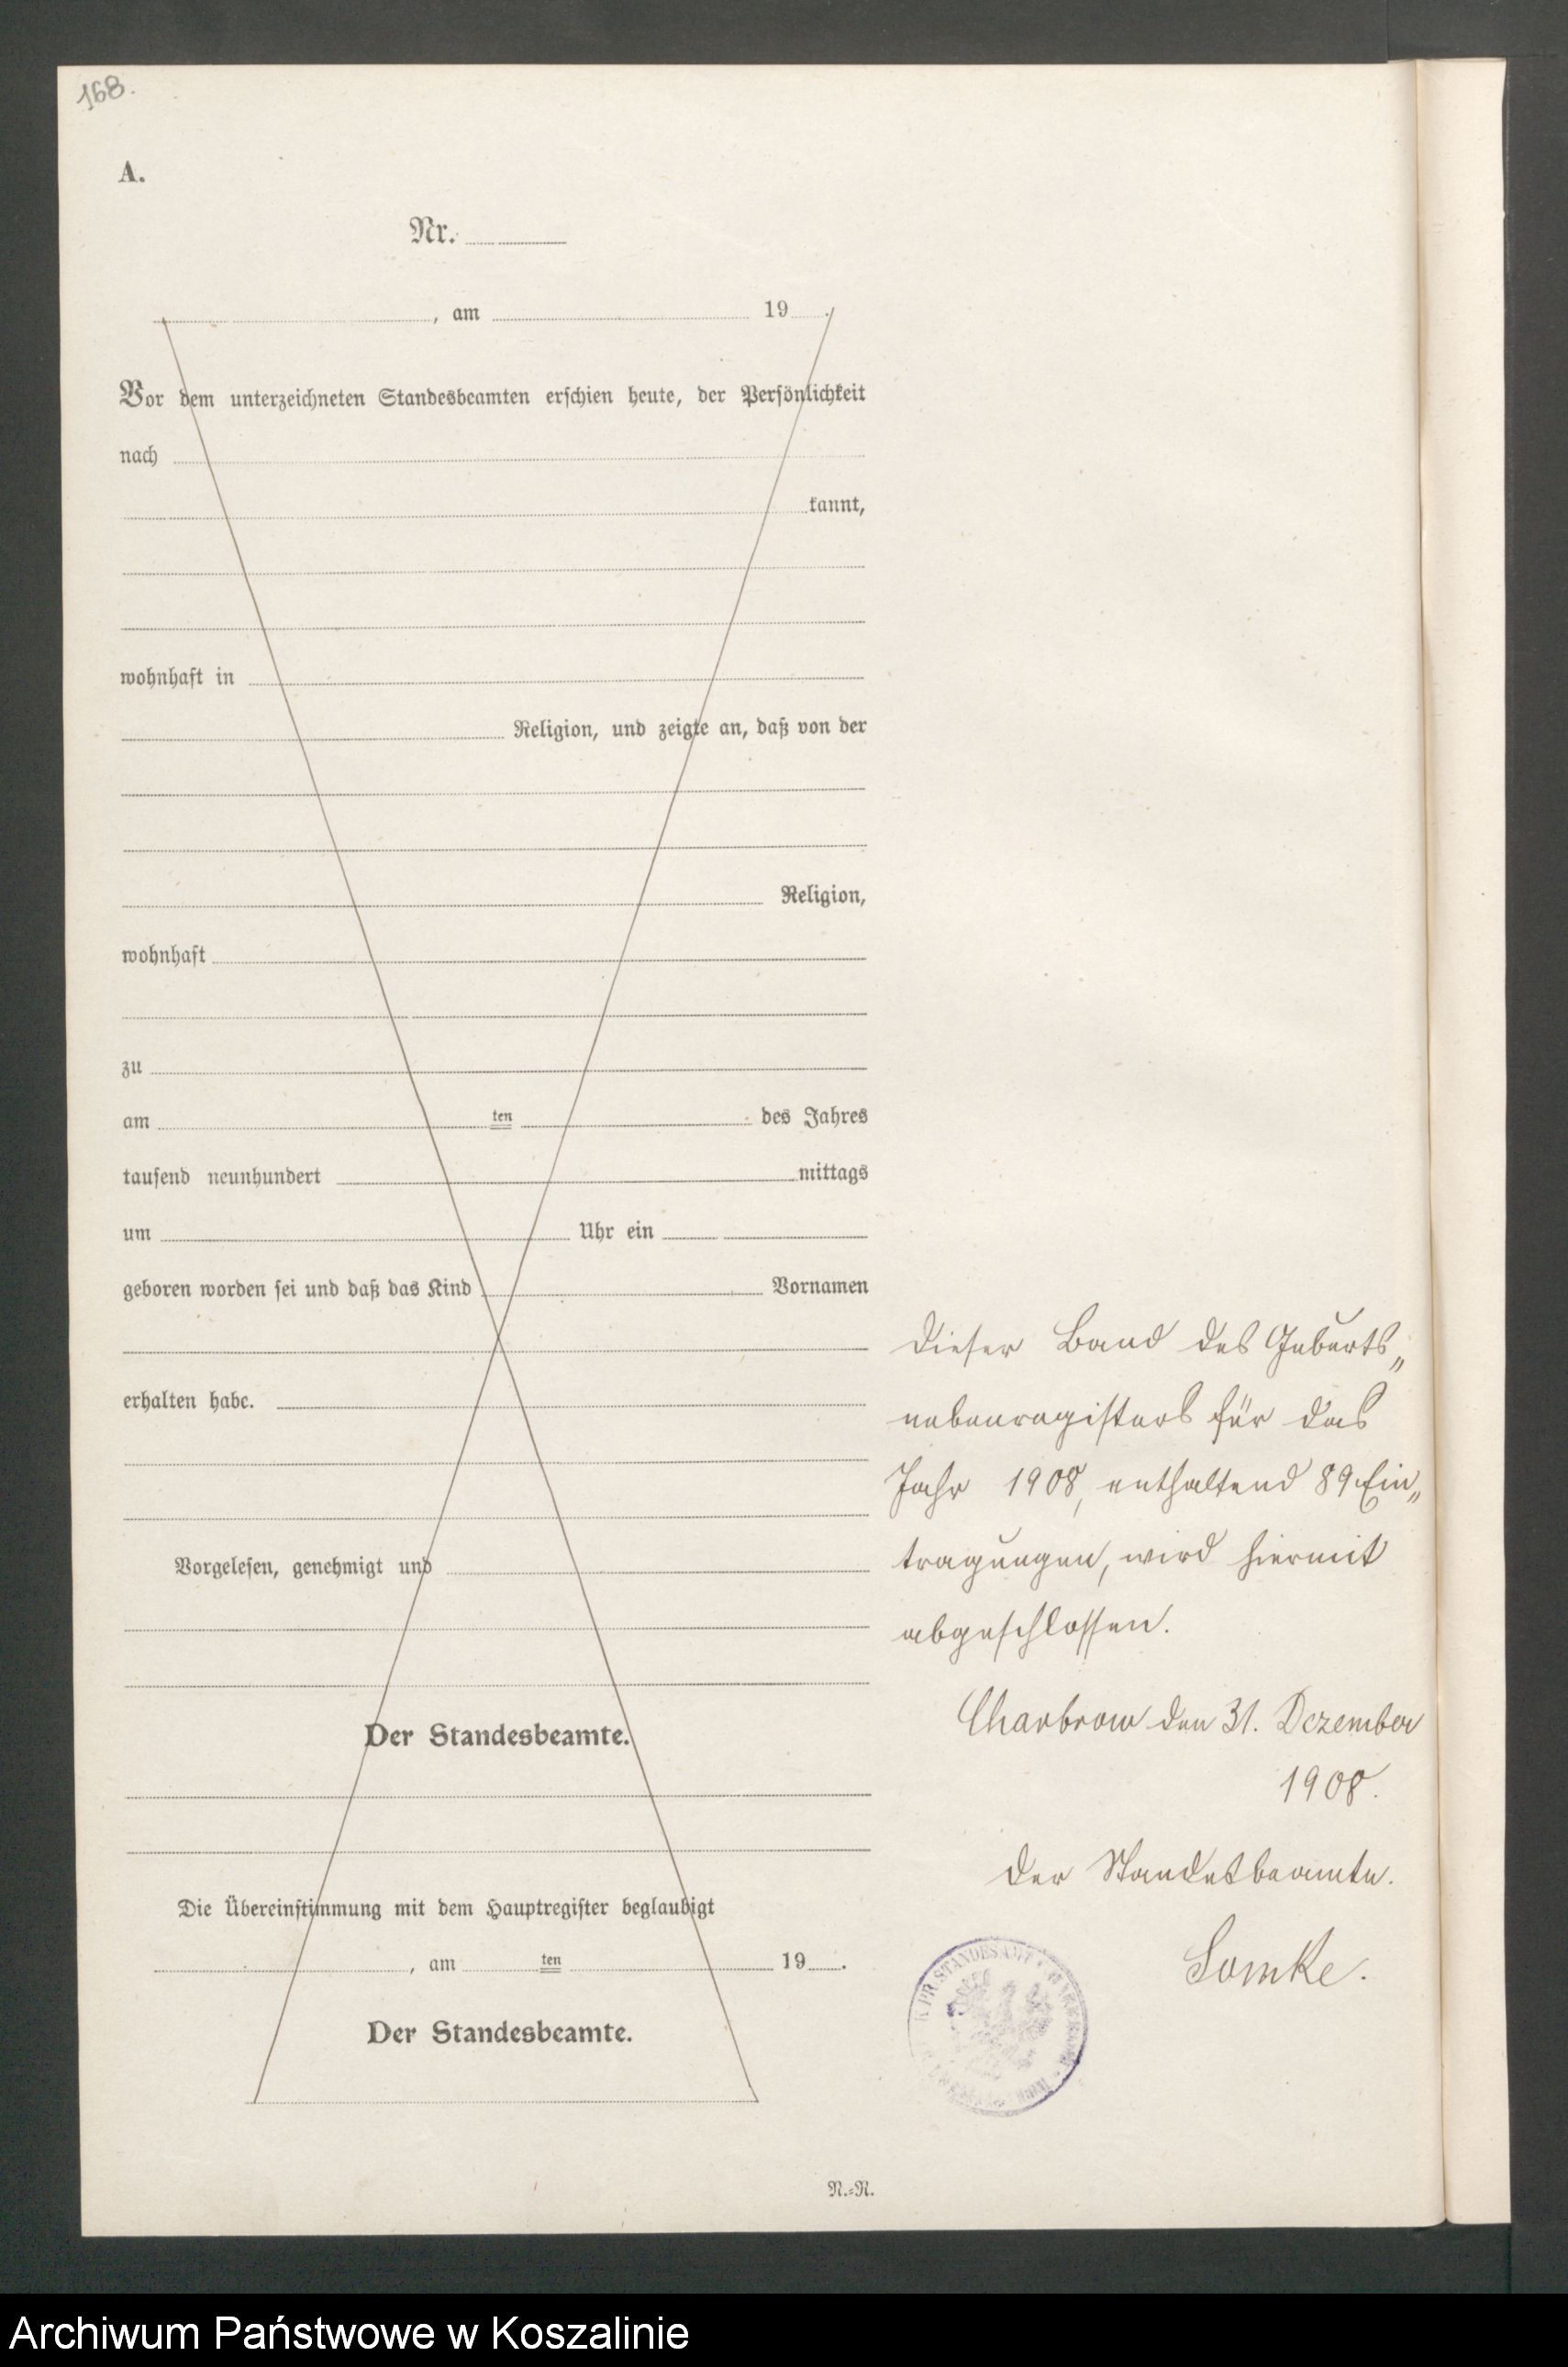 168.
A.
Nr.
, am 19 .
Vor dem unterzeichneten Standesbeamten erschien heute, der Persönlichkeit
nach
kannt,
wohnhaft in
Religion, und zeigte an, daß von der
Religion,
wohnhaft
zu
am ten des Jahres
tausend neunhundert mittags
um Uhr ein
geboren worden sei und daß das Kind Vornamen
erhalten habe.
Vorgelesen, genehmigt und
Der Standesbeamte.
Die Übereinstimmung mit dem Hauptregister beglaubigt
, am ten 19 .
Der Standesbeamte.
N.=R.
Dieser Band des Geburts„
nebenregisters für das
Jahr 1908, enthaltend 89 Ein„
tragungen, wird hiermit
abgeschlossen.
Charbrow den 31. Dezember
1908.
Der Standesbeamte.
K. PR. STANDESAMT
Archiwum Państwowe w Koszalinie